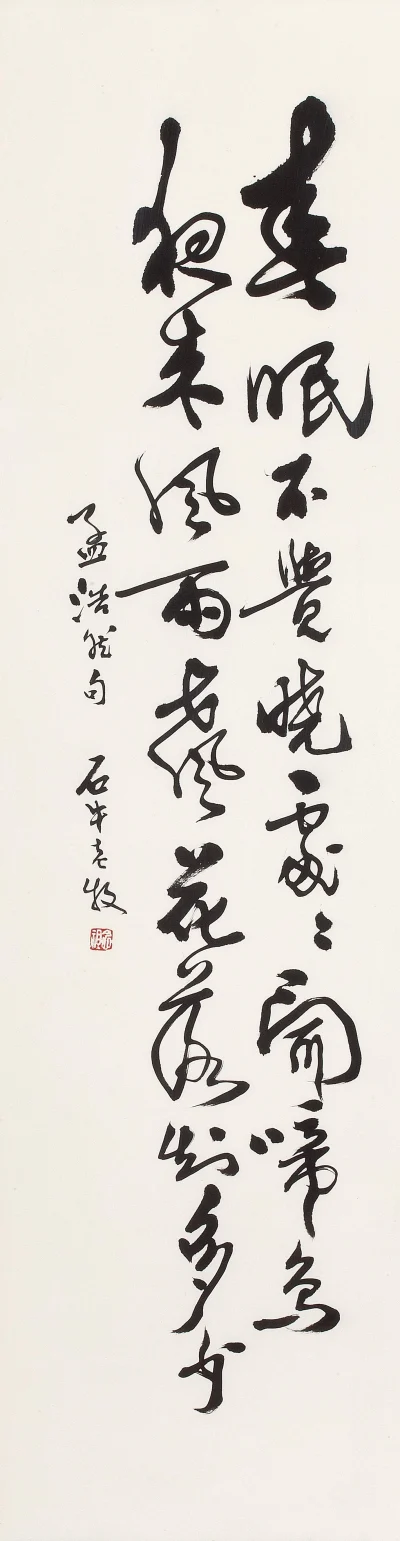 春眠不覺曉處〻聞啼鳥
夜来風雨聲花落知多少
孟浩然句 石牛老牧